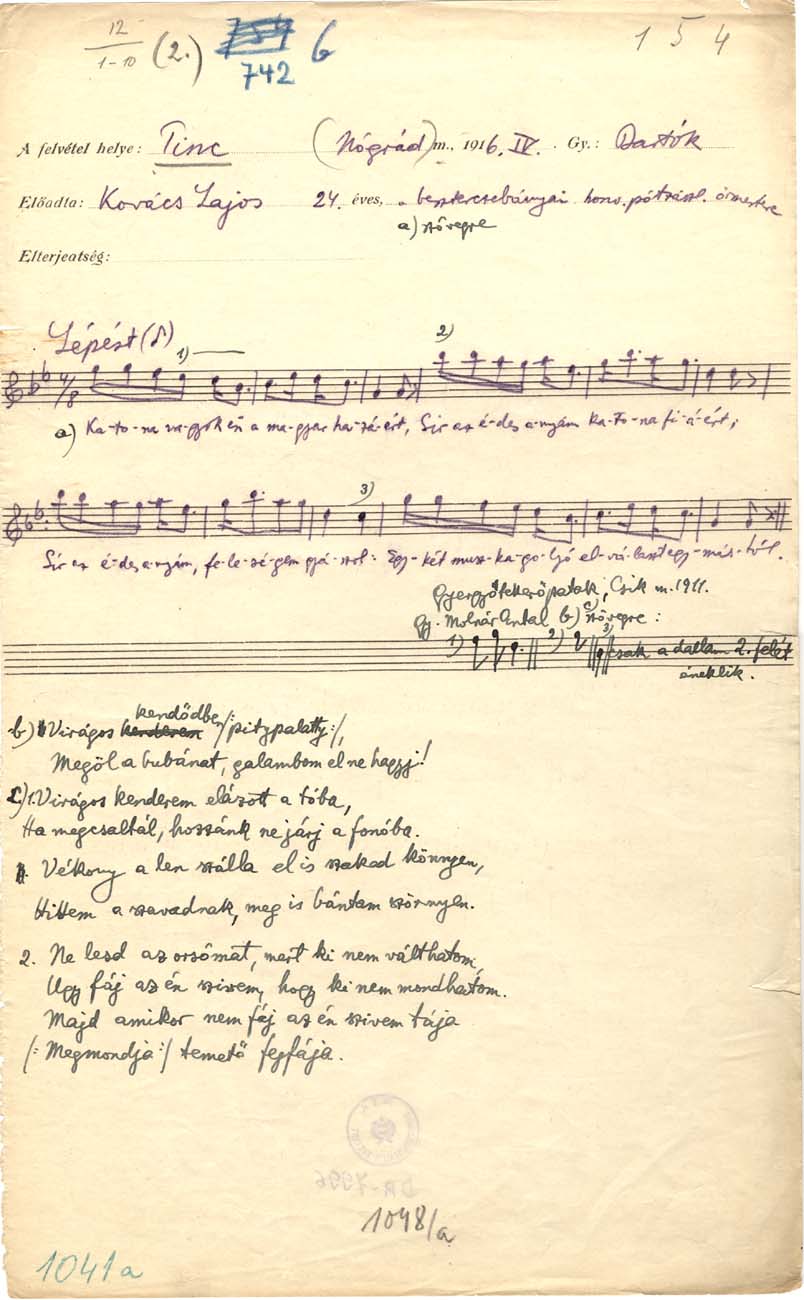 12
1-10 (2.) 754 6
742
154
A felvétel helye: Tinc (Nógrád) m., 1916. IV. Gy.: Bartók
Előadta: Kovács Lajos 24. éves, a besztercebányai honv. pótzászl. őrmestere
a) szövegre
Elterjeatség:
Lépést (♪)
1) 2)
4/8
a) Ka-to-na va-gyok én a ma-gyar ha-zá-ért, Sír az é-des a-nyám ka-to-na fi-á-ért;
3)
Sír az é-des a-nyám, fe-le-sé-gem gyá-szol: Egy-két musz-ka go-lyó el-vá-laszt egy-más-tól.
Gyergyótekerőpatak, Csik m. 1911.
Gy. Molnár Antal b) c) szövegre:
1) 2) 3) csak a dallam 2. felét
éneklik.
b) Virágos kenderem kendődben /:pitypalatty:/,
Megöl a bubánat, galambom el ne hagyj!
c) 1. Virágos kenderem elázott a tóba,
Ha megcsaltál, hozzánk ne járj a fonóba.
Vékony a len szálla el is szakad könnyen,
Hittem a szavadnak, meg is bántam szörnyen.
2. Ne lesd az orsómat, mert ki nem válthatom,
Ugy fáj az én szivem, hogy ki nem mondhatom.
Majd amikor nem fáj az én szivem tája
/: Megmondja :/ temető fejfája.
DR-7996
1048/a
1041a